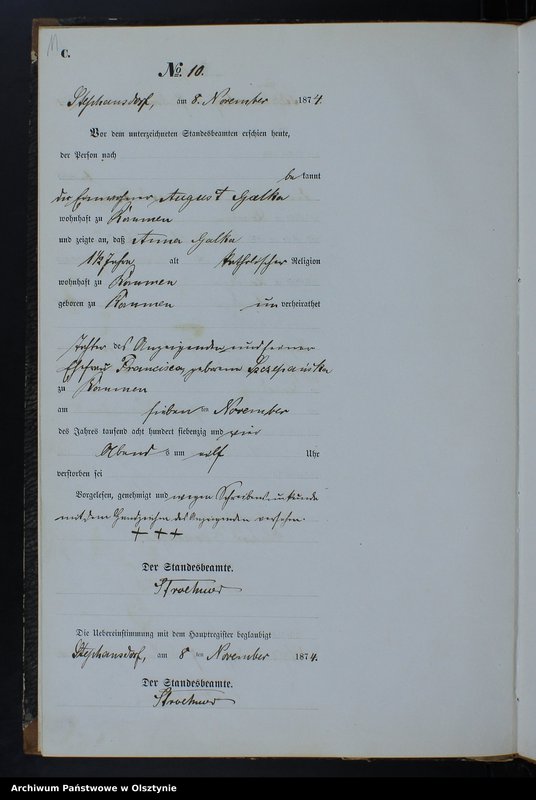 C.
No. 10.
Stephansdorf, am 8. November 1874.
Vor dem unterzeichneten Standesbeamten erschien heute,
der Person nach
be kannt
der Einwohner August Galka
wohnhaft zu Raumen
und zeigte an, daß Anna Galka
1 1/2 Jahr alt katholischer Religion
wohnhaft zu Raumen
geboren zu Raumen un verheirathet
Tochter des Anzeigenden und seiner
Ehefrau Francisca, geborene Szczepańska
zu Raumen
am sieben ten November
des Jahres tausend acht hundert siebenzig und vier
Abend s um elf Uhr
verstorben sei
Vorgelesen, genehmigt und wegen Schreibensunkunde
mit dem Handzeichen des Anzeigenden versehen.
+ + +
Der Standesbeamte.
Die Uebereinstimmung mit dem Hauptregister beglaubigt
Stephansdorf, am 8 ten November 1874.
Der Standesbeamte.
Archiwum Państwowe w Olsztynie